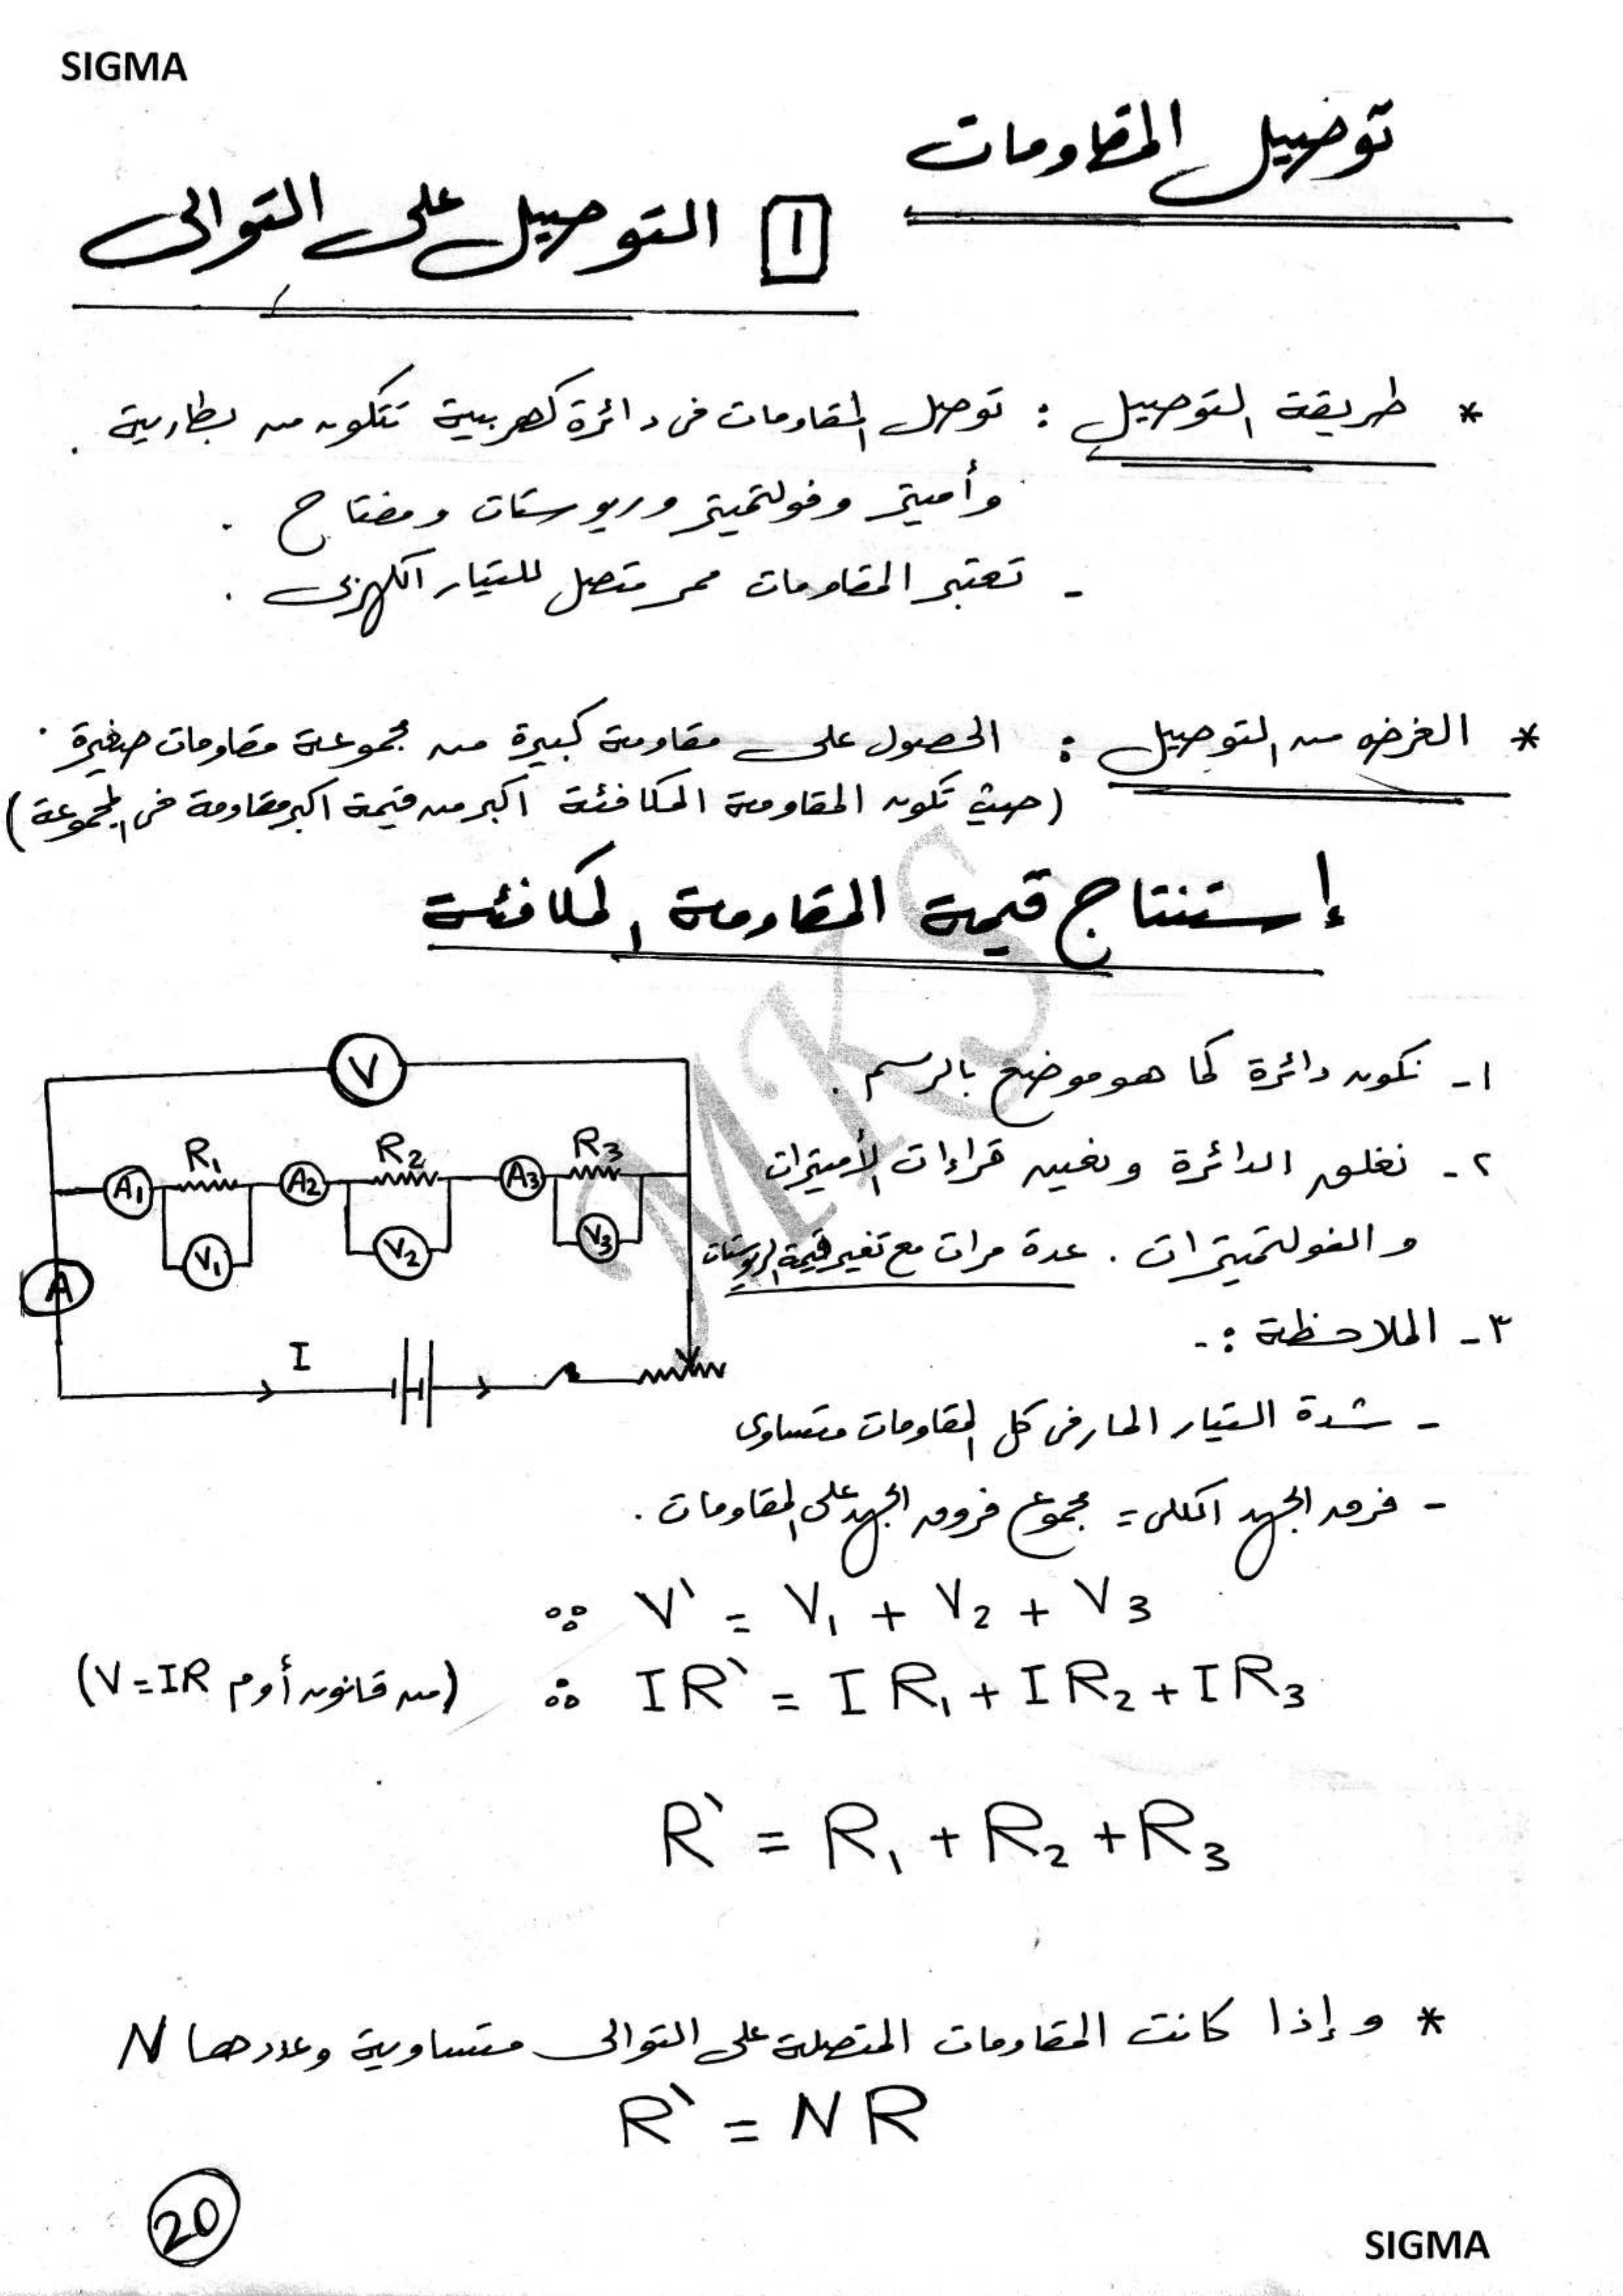 SIGMA
توصيل المقاومات
1 التوصيل على التوالى
* طريقة التوصيل : توصل المقاومات فى دائرة كهربية تتكون من بطارية .
وأميتر وفولتميتر وريوستات ومفتاح .
- تعتبر المقاومات ممر متصل للتيار الكهربى .
* الغرض من التوصيل : الحصول على مقاومة كبيرة من مجموعة مقاومات صغيرة .
(حيث تكون المقاومة المكافئة اكبر من قيمة اكبر مقاومة فى المجموعة)
إستنتاج قيمة المقاومة المكافئة
١- نكون دائرة كما هو موضح بالرسم .
٢- نغلق الدائرة ونعين قراءات الأميترات
والفولتميترات . عدة مرات مع تغير قيمة الريوستات
V
R1 R2 R3
A1 A2 A3
V1 V2 V3
A
I
٣- الملاحظة :-
- شدة التيار المار فى كل المقاومات متساوى
- فرق الجهد الكلى = مجموع فروق الجهد على المقاومات .
∵ V' = V1 + V2 + V3
∴ IR' = IR1 + IR2 + IR3 (من قانون أوم V=IR)
R' = R1 + R2 + R3
* وإذا كانت المقاومات المتصلة على التوالى متساوية وعددها N
R' = NR
20
SIGMA
MKS